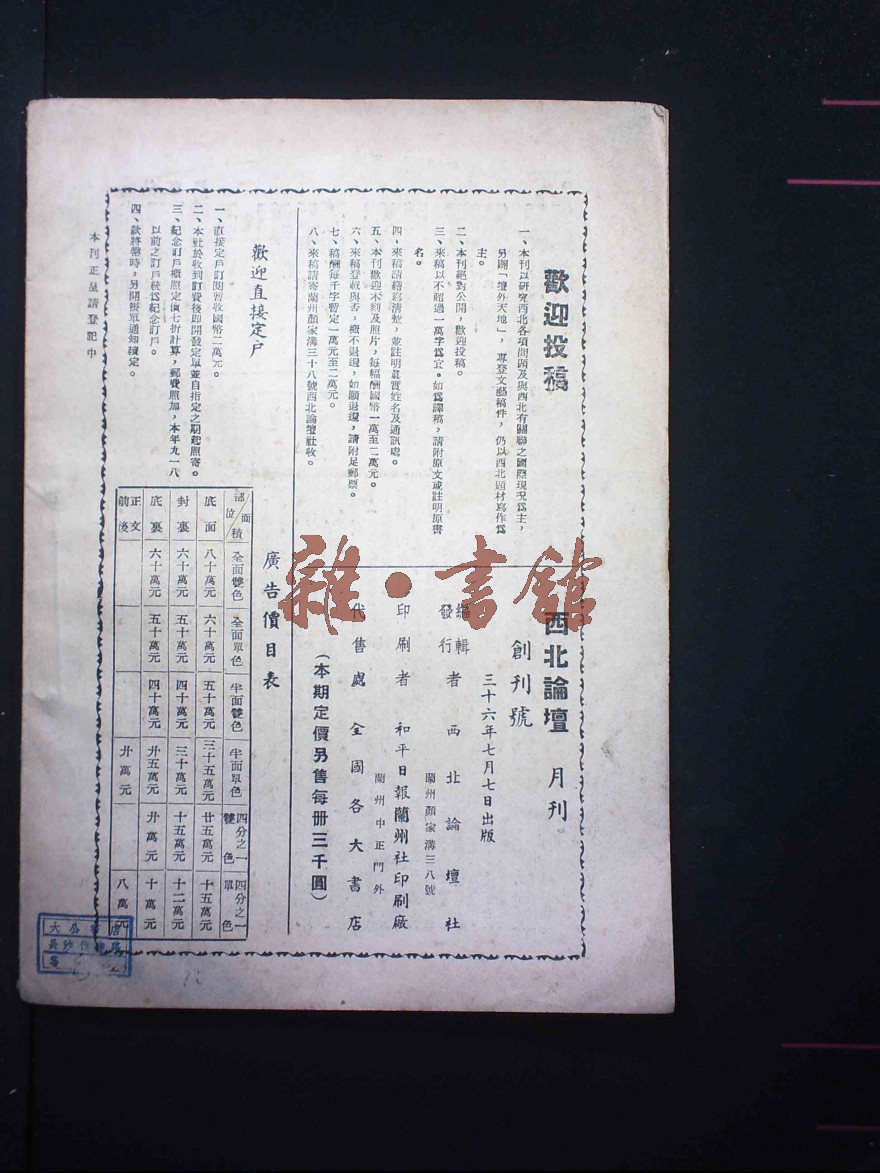 歡迎投稿
一、本刊以研究西北各項問題及與西北有關聯之國際現況為主，
另闢「壇外天地」，專登文藝稿件，仍以西北題材寫作為
主。
二、本刊絕對公開，歡迎投稿。
三、來稿以不超過一萬字為宜。如為譯稿，請附原文或註明原書
名。
四、來稿請繕寫清楚，並註明真實姓名及通訊處。
五、本刊歡迎木刻及照片，每幅酬國幣一萬至二萬元。
六、來稿登載與否，概不退還，如願退還，請附足郵票。
七、稿酬每千字暫定一萬元至二萬元。
八、來稿請寄蘭州顏家溝三十八號西北論壇社收。
歡迎直接定户
一、直接定戶訂閱暫收國幣二萬元。
二、本社於收到訂費後即開發定單並自指定之期起照寄。
三、紀念訂戶概照定價七折計算，郵費照加，本年九一八
以前之訂戶統為紀念訂戶。
四、款將罄時，另開帳單通知續定。
西北論壇 月刊
創刊號
三十六年七月七日出版
編輯發行者 西北論壇社
蘭州顏家溝三八號
印刷者 和平日報蘭州社印刷廠
蘭州中正門外
代售處 全國各大書店
（本期定價另售每册三千圓）
廣告價目表
部位/面積 全面雙色 全面單色 半面雙色 半面單色 四分之一雙色 四分之一單色
底面 八十萬元 六十萬元 五十萬元 三十五萬元 廿五萬元 十五萬元
封裏 六十萬元 五十萬元 四十萬元 三十萬元 十五萬元 十二萬元
底裏 六十萬元 五十萬元 四十萬元 廿五萬元 廿萬元 十萬元
正文前後 廿萬元 八萬元
本刊正呈請登記中
雜·書館